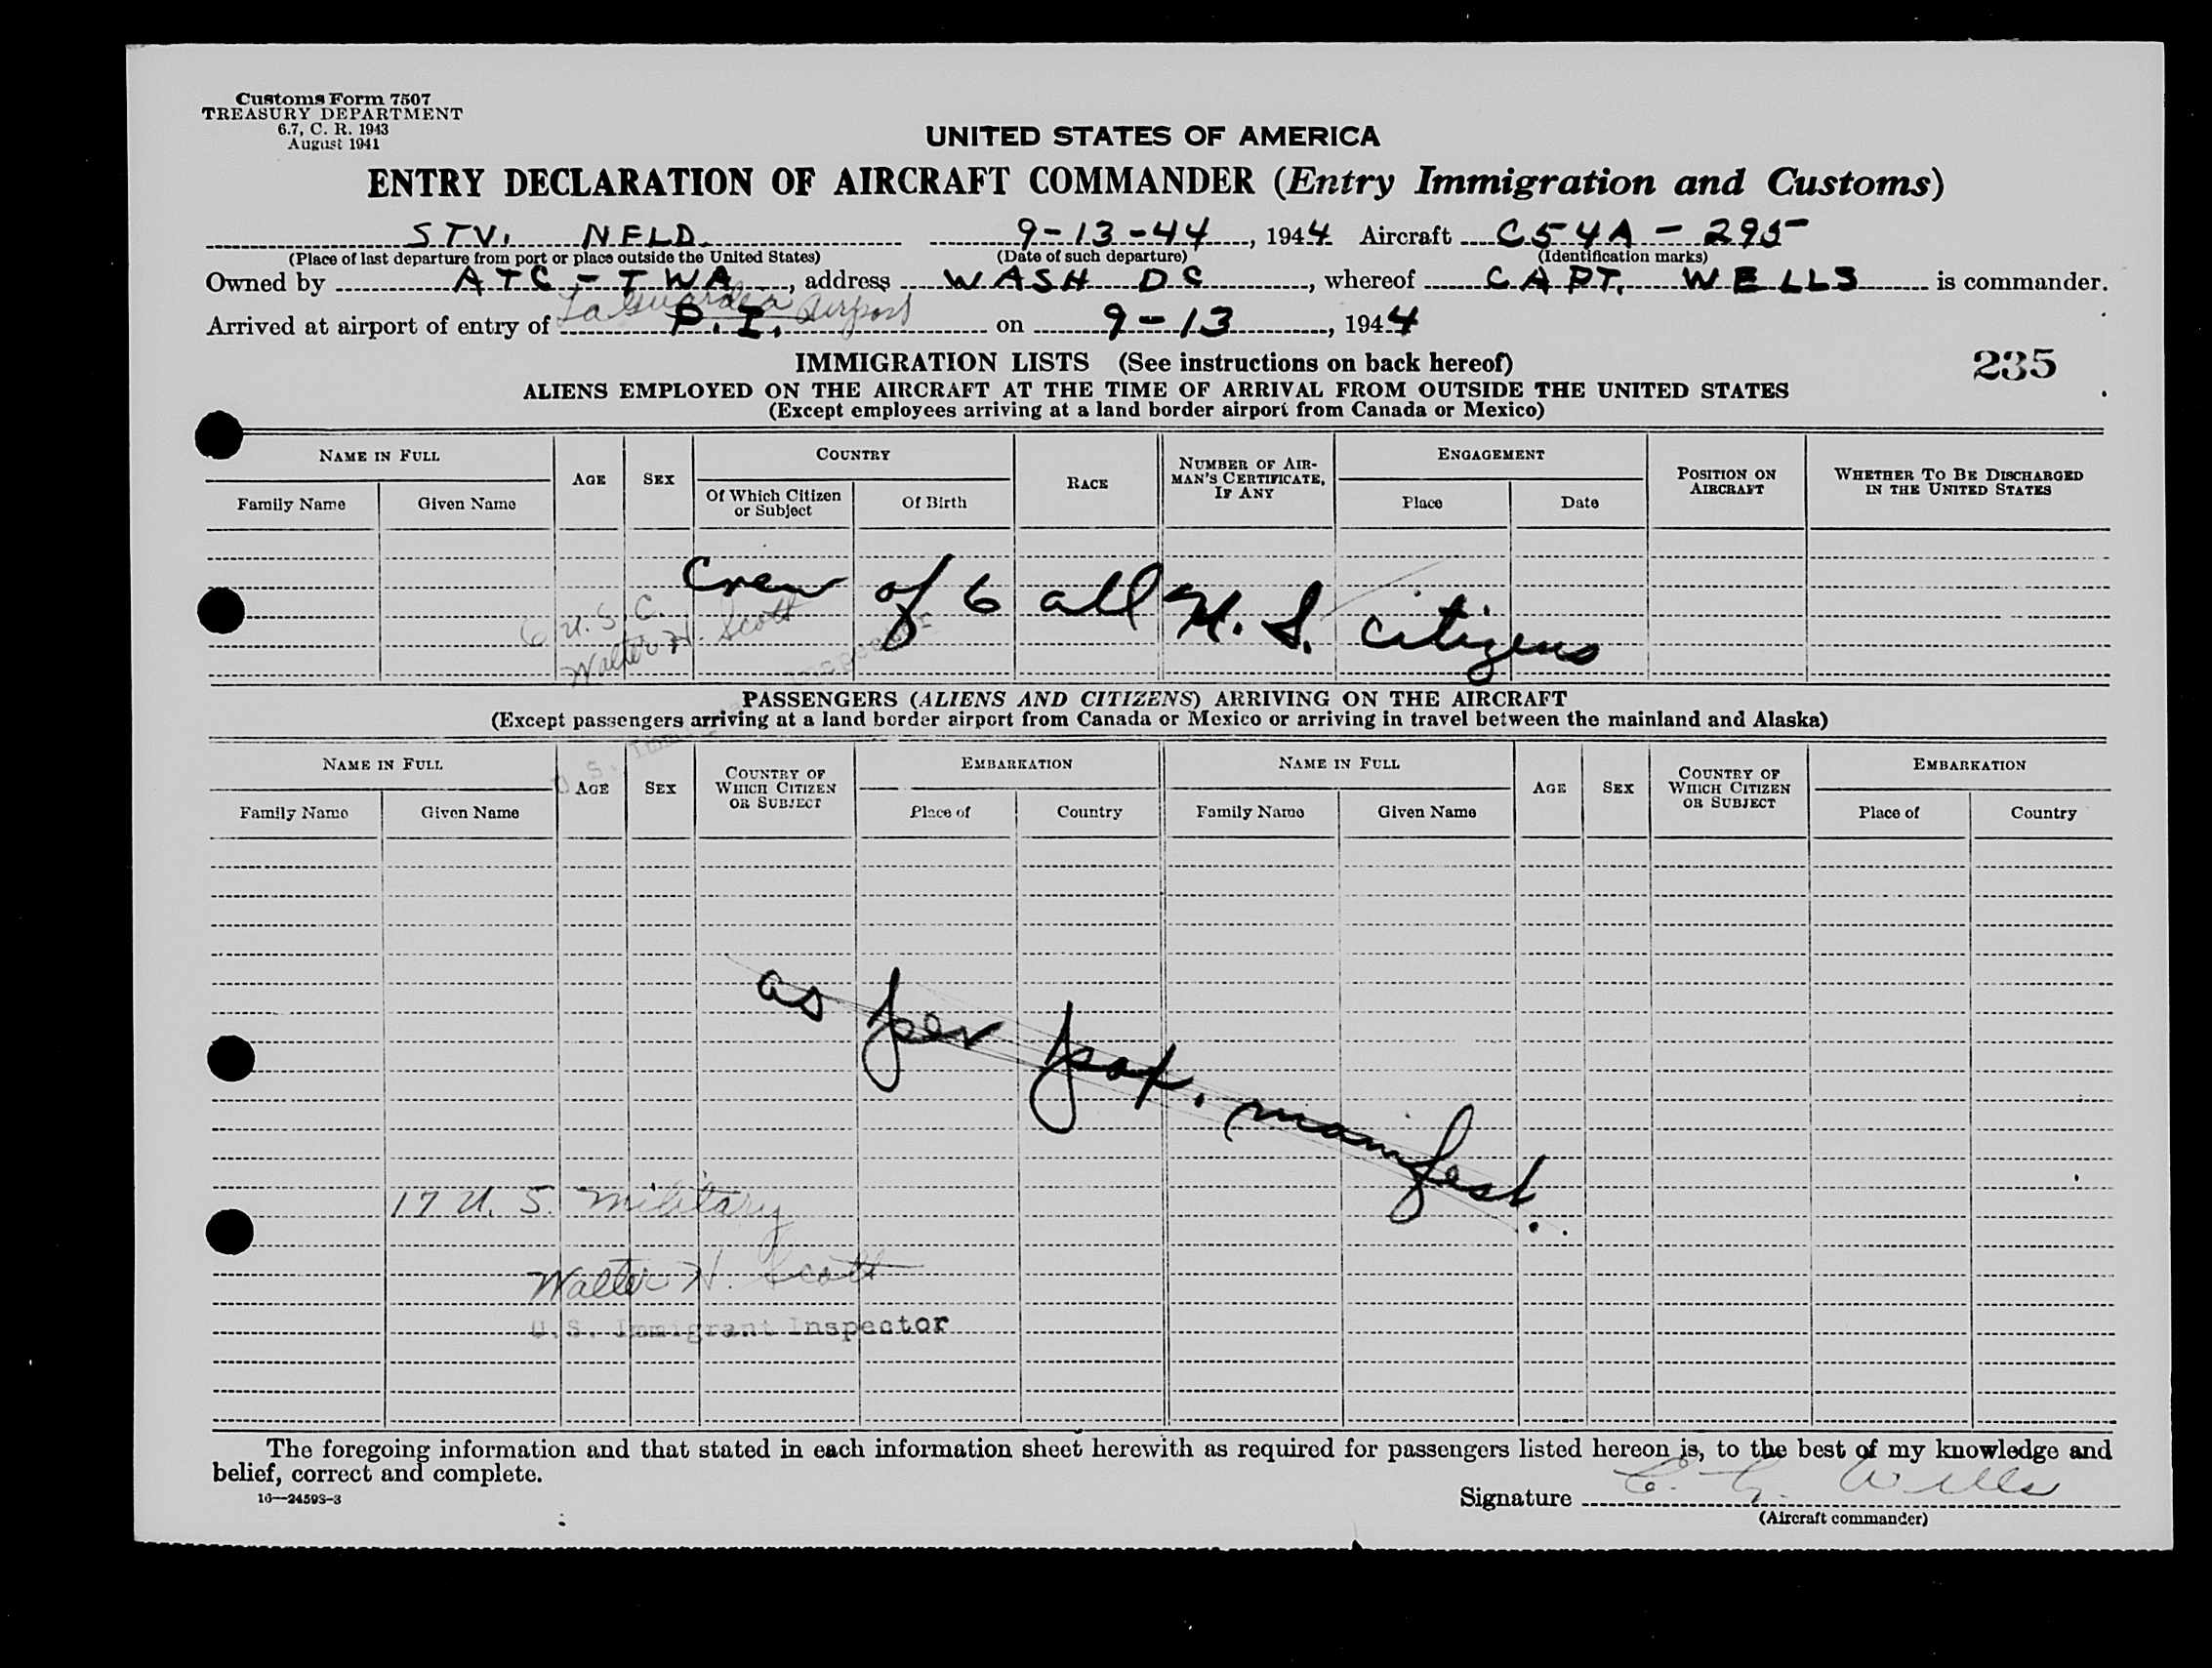 Customs Form 7507
TREASURY DEPARTMENT
6.7, C. R. 1943
August 1941
UNITED STATES OF AMERICA
ENTRY DECLARATION OF AIRCRAFT COMMANDER (Entry Immigration and Customs)
STV. NFLD. 9-13-44, 1944 Aircraft C54A - 295
(Place of last departure from port or place outside the United States) (Date of such departure) (Identification marks)
Owned by ATC - TWA, address WASH DC, whereof CAPT. WELLS is commander.
LaGuardia Airport
Arrived at airport of entry of P.I. on 9-13, 1944
IMMIGRATION LISTS (See instructions on back hereof)
235
ALIENS EMPLOYED ON THE AIRCRAFT AT THE TIME OF ARRIVAL FROM OUTSIDE THE UNITED STATES
(Except employees arriving at a land border airport from Canada or Mexico)
NAME IN FULL AGE SEX COUNTRY RACE NUMBER OF AIRMAN'S CERTIFICATE, IF ANY ENGAGEMENT POSITION ON AIRCRAFT WHETHER TO BE DISCHARGED IN THE UNITED STATES
Family Name Given Name Of Which Citizen or Subject Of Birth Place Date
Crew of 6 all U. S. citizens
6 U.S.C.
Walter H. Scott
U.S. Immigrant Inspector
PASSENGERS (ALIENS AND CITIZENS) ARRIVING ON THE AIRCRAFT
(Except passengers arriving at a land border airport from Canada or Mexico or arriving in travel between the mainland and Alaska)
NAME IN FULL AGE SEX COUNTRY OF WHICH CITIZEN OR SUBJECT EMBARKATION NAME IN FULL AGE SEX COUNTRY OF WHICH CITIZEN OR SUBJECT EMBARKATION
Family Name Given Name Place of Country Family Name Given Name Place of Country
as per pax. manifest.
17 U. S. military
Walter H. Scott
U.S. Immigrant Inspector
The foregoing information and that stated in each information sheet herewith as required for passengers listed hereon is, to the best of my knowledge and
belief, correct and complete.
16—24593-3
Signature C. G. Wells
(Aircraft commander)